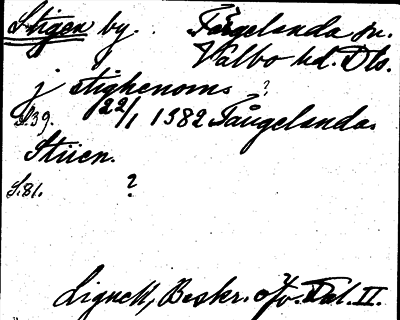 Stigen by. Färgelanda sn.
Valbo hd. Dls.
j stighenom. ?
S.39. 22/1 1382 Fäugelanda.
Stiien.
S.81. ?
Lignell, Beskr. ö/v. Dal. II.